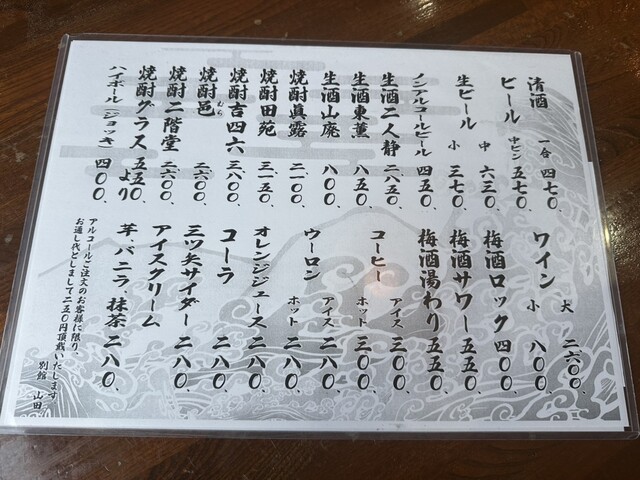 清酒 一合 四七〇、
ビール 中ビン 五七〇、
生ビール 中 六三〇、
小 三七〇、
ノンアルコールビール 四五〇、
生酒二人静 二八五〇、
生酒東薫 八五〇、
生酒山廃 八〇〇、
焼酎眞露 二一〇〇、
焼酎田苑 三一五〇、
焼酎吉四六 三八〇〇、
焼酎邑 二六〇〇、
むら
焼酎二階堂 二六〇〇、
焼酎グラス 五五〇、より
ハイボール(ジョッキ) 四〇〇、
ワイン 大 二六〇〇、
小 八〇〇、
梅酒ロック 四〇〇、
梅酒サワー 五五〇、
梅酒湯わり 五五〇、
コーヒー アイス 三〇〇、
ホット 三〇〇、
ウーロン アイス 二八〇、
ホット 二八〇、
オレンジジュース 二八〇、
コーラ 二八〇、
三ツ矢サイダー 二八〇、
アイスクリーム
芋、バニラ、抹茶 二八〇、
アルコールご注文のお客様に限り、
お通し代としまして二五〇円頂戴いたします
別館 山田